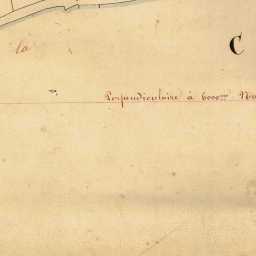 la
C
Perpendiculaire à 6000.m N